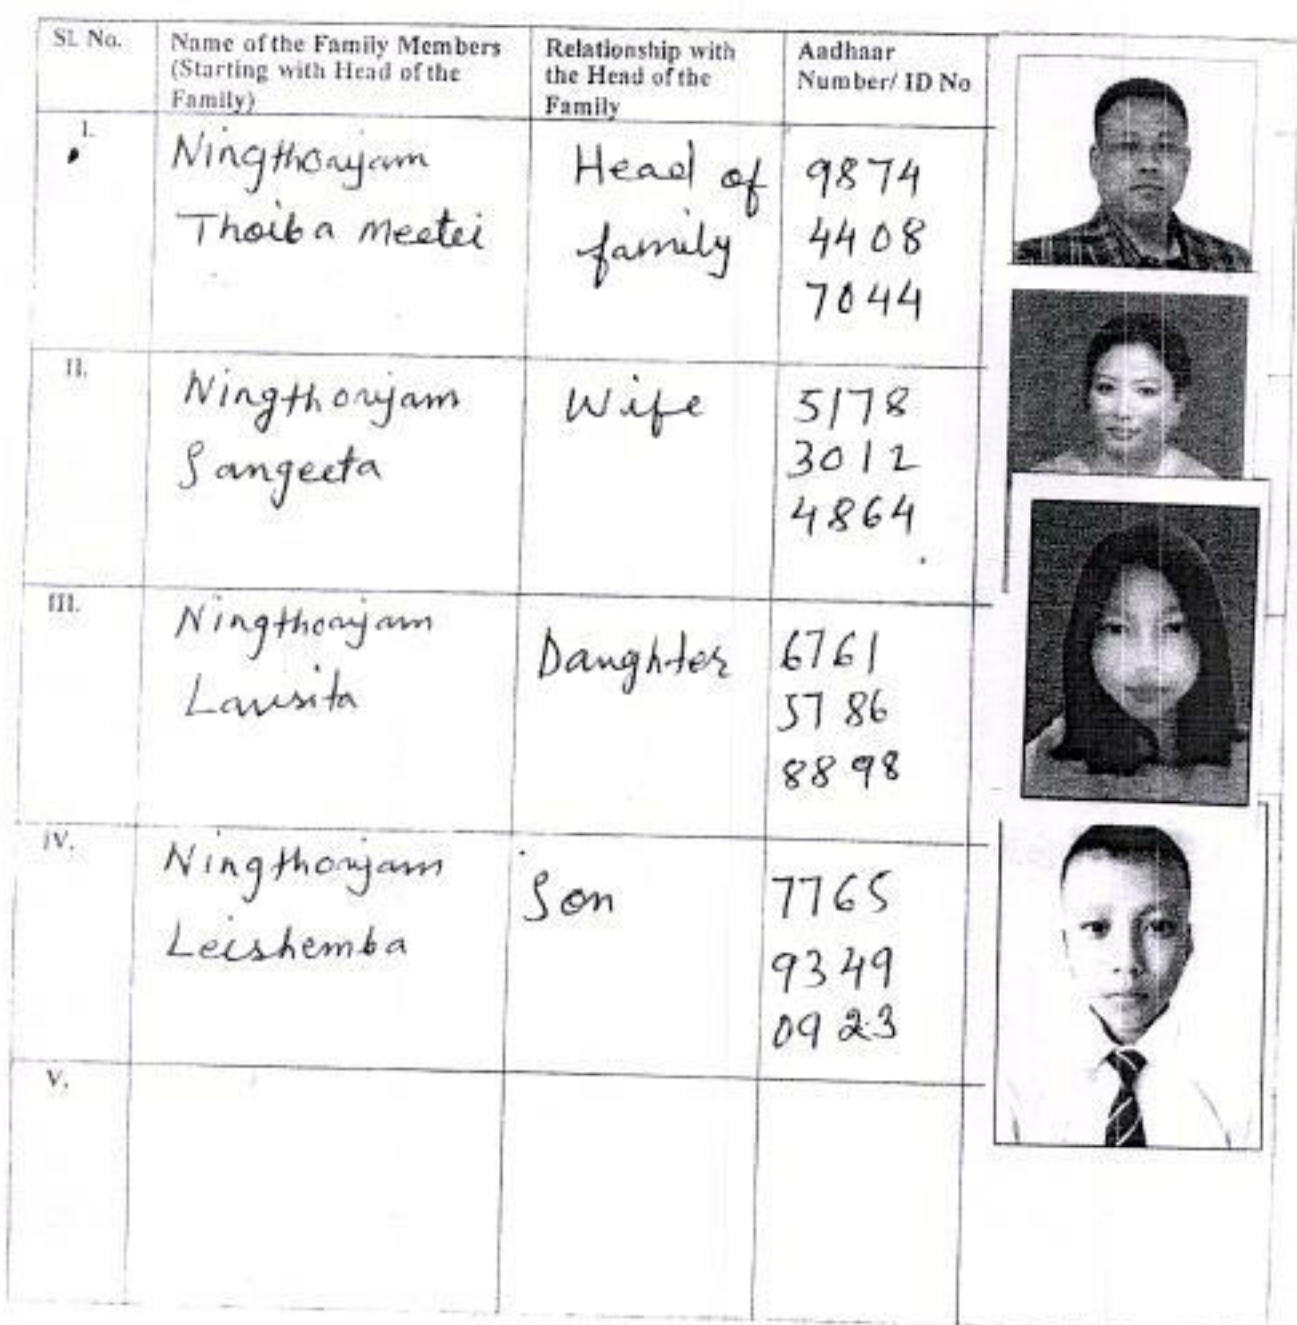 Sl. No.
Name of the Family Members
(Starting with Head of the
Family)
Relationship with
the Head of the
Family
Aadhaar
Number/ ID No
I.
Ningthoujam
Thoiba Meetei
Head of
family
9874
4408
7044
II.
Ningthoujam
Sangeeta
Wife
5178
3012
4864
III.
Ningthoujam
Daughter
6761
5786
8898
IV.
Ningthoujam
Leishemba
Son
7765
9349
0923
V.